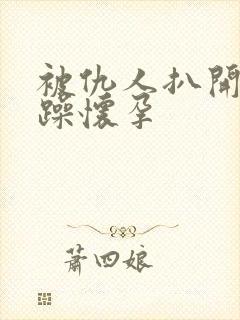 被仇人扒開
躁懷孕
蕭四娘